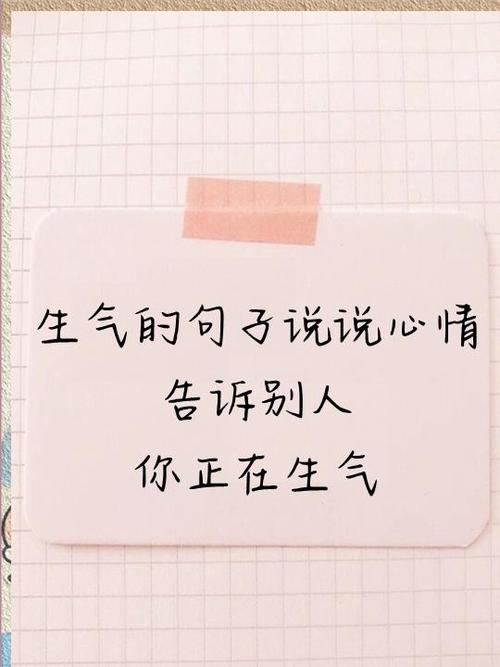 生气的句子说说心情
告诉别人
你正在生气